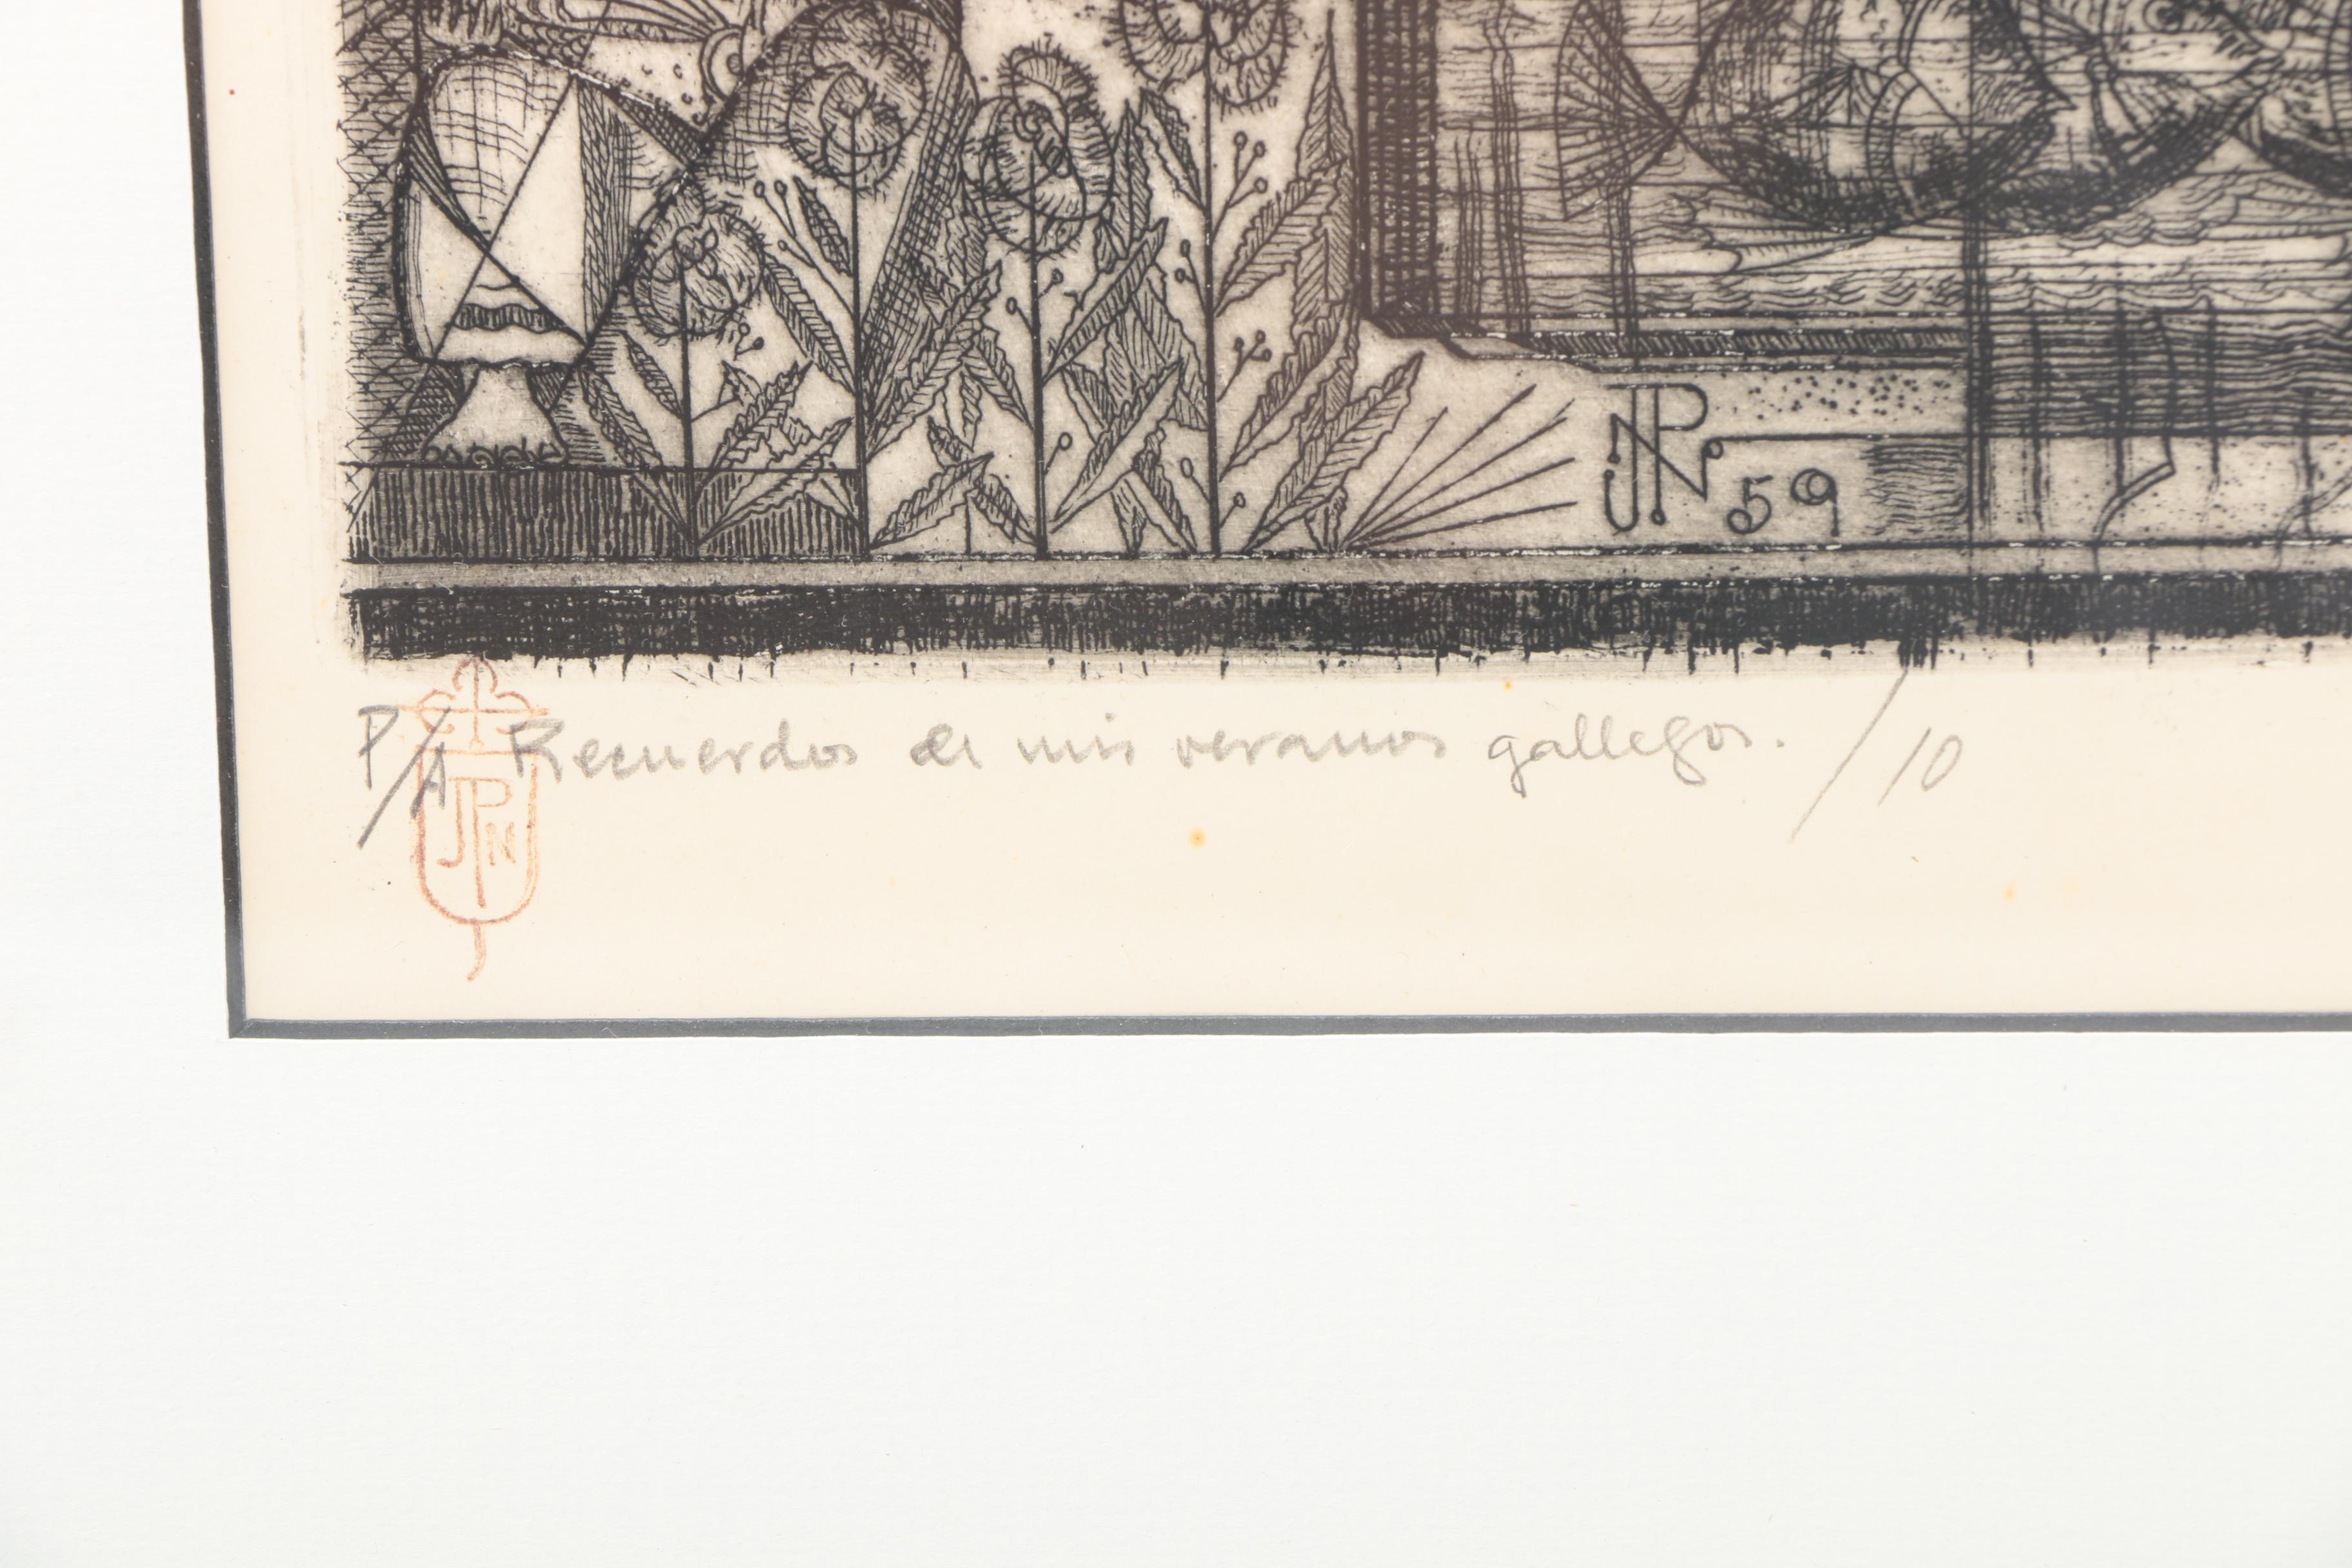 JPN 59
P/A Recuerdos de mis veranos gallegos. / 10
JPN